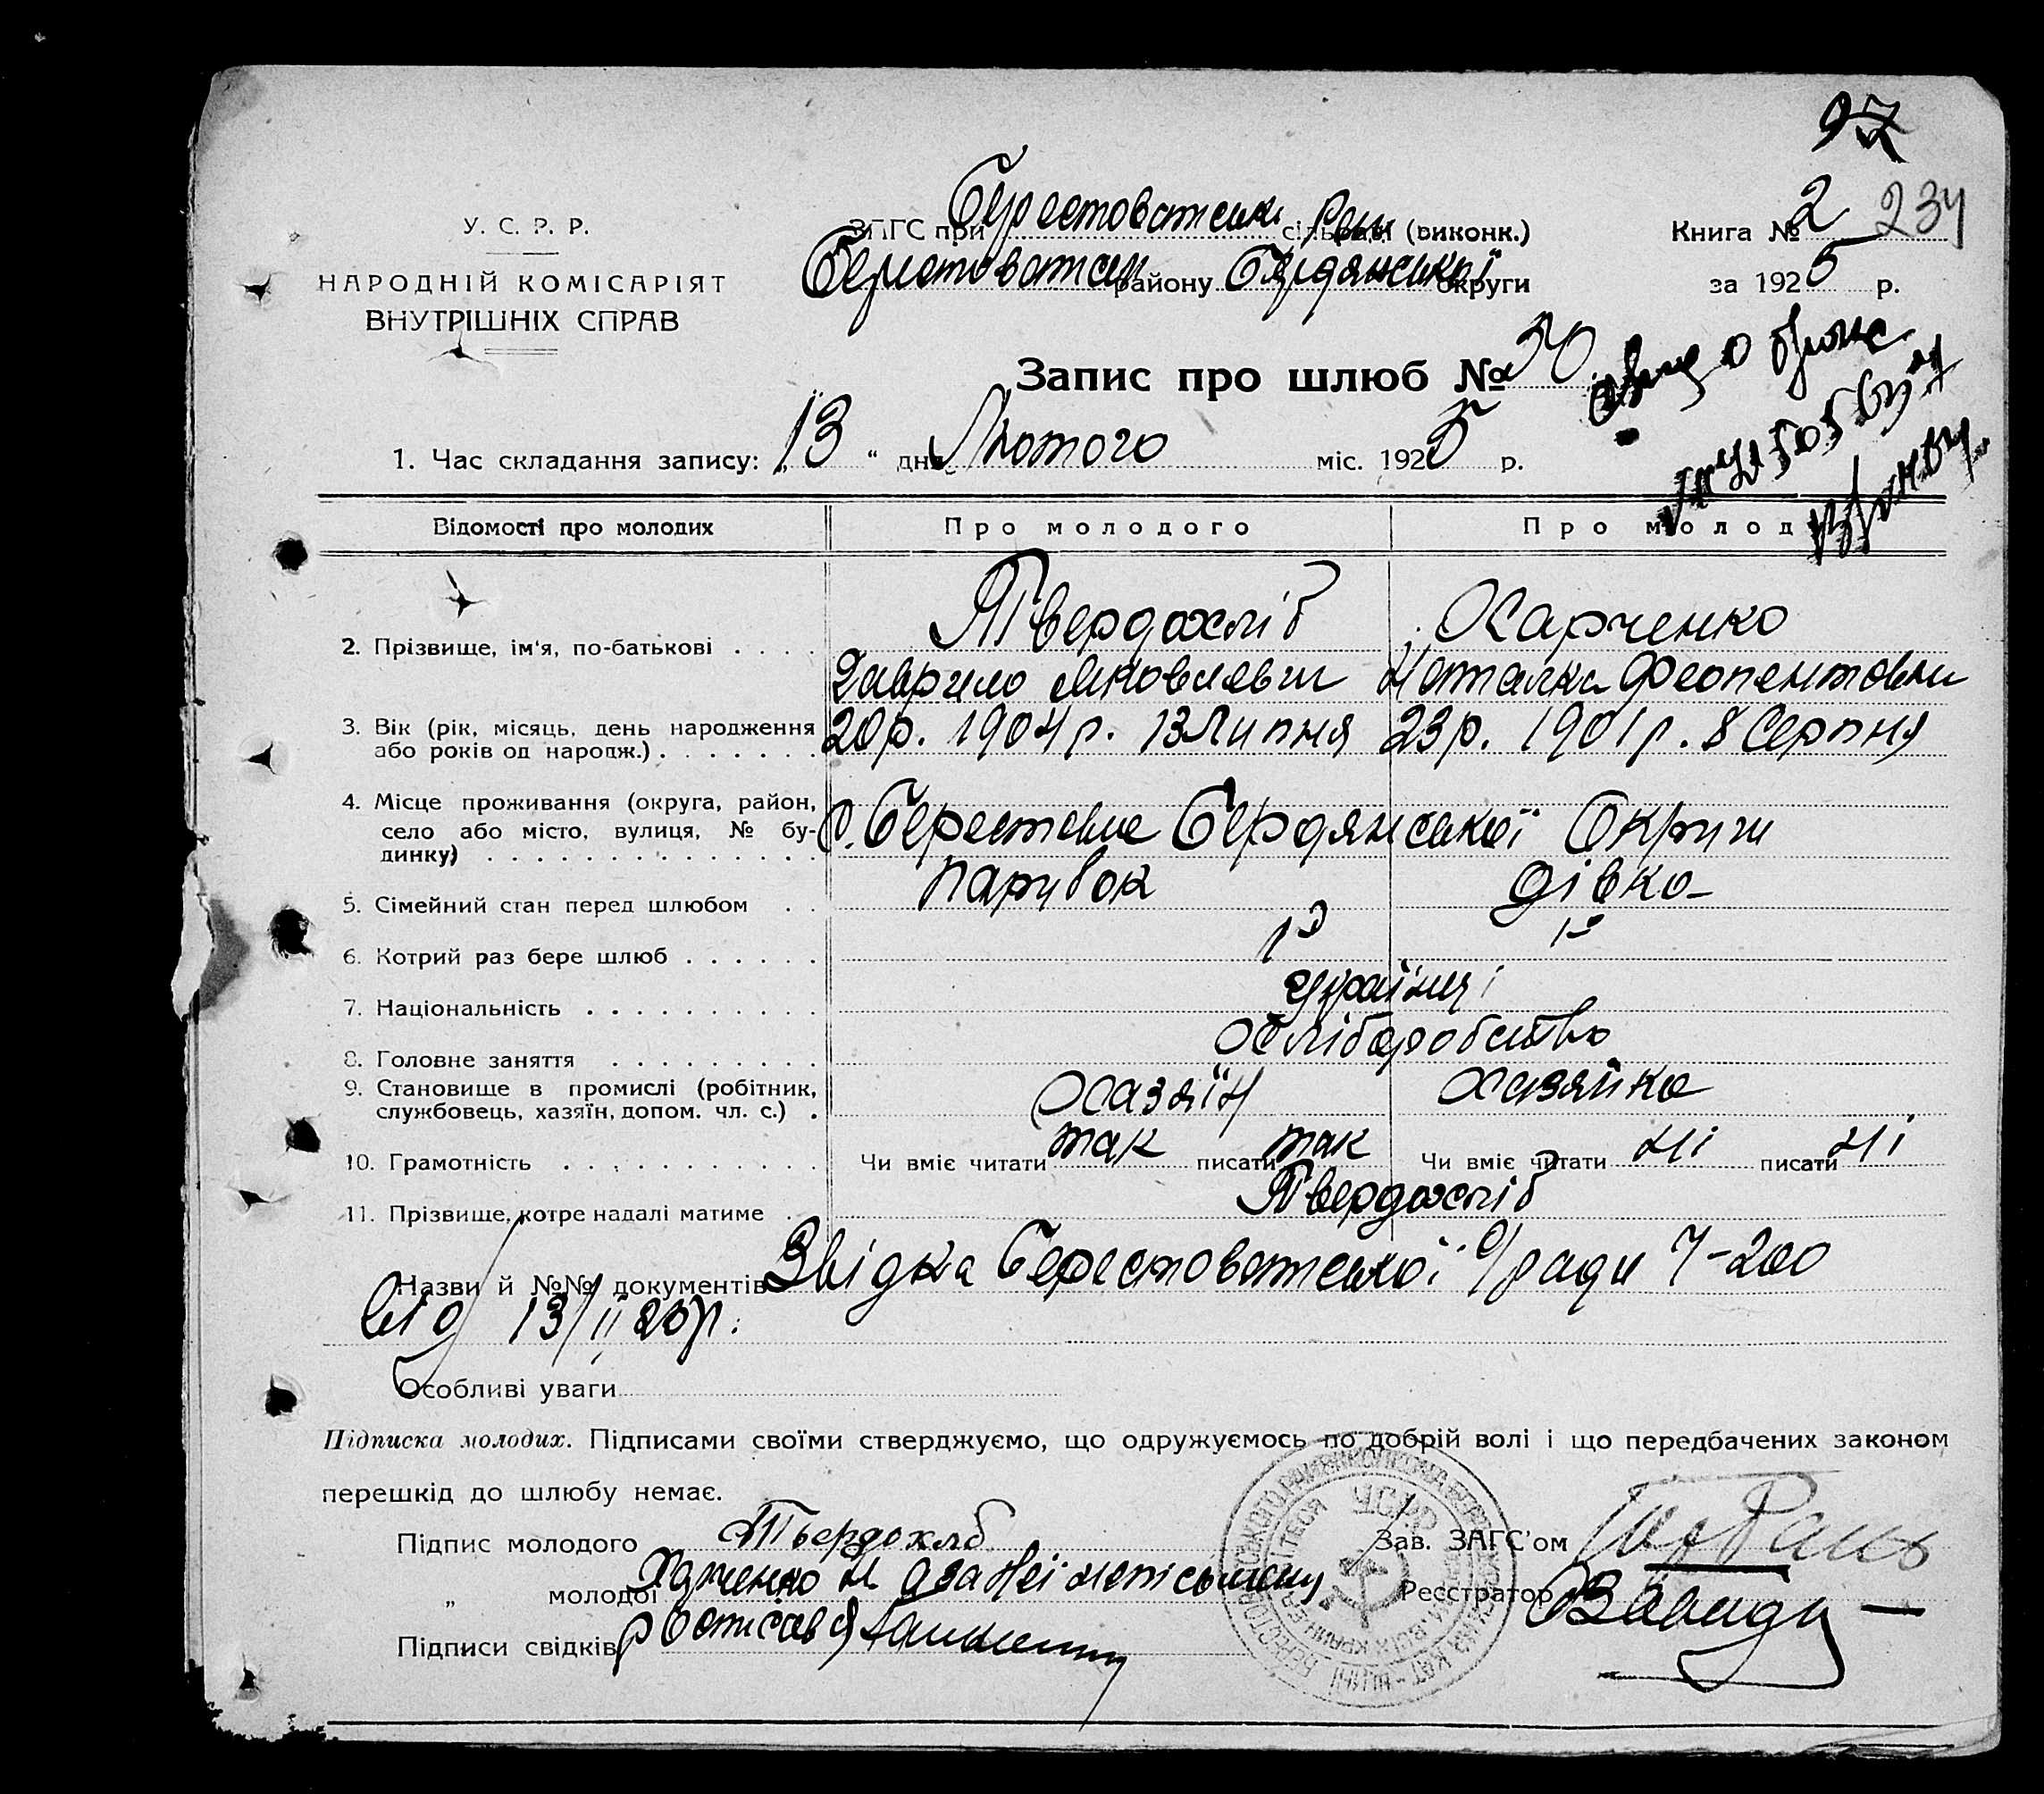 97
У. С. Р. Р.
НАРОДНІЙ КОМІСАРІЯТ
ВНУТРІШНІХ СПРАВ
ЗАГС при Берестоватськ. Рай сільраді (виконк.)
Берестоватськ району Бердянської округи
Книга № 2 234
за 1925 р.
Запис про шлюб № 30
1. Час складання запису: „13“ дня Лютого міс. 1925 р.
Відомості про молодих Про молодого Про молоду
2. Прізвище, ім'я, по-батькові Твердохліб Харченко
Гаврило Яковлевич Наталка Феопентовна
3. Вік (рік, місяць, день народження або років од народж.) 20р. 1904р. 13 Липня 23р. 1901р. 8 Серпня
4. Місце проживання (округа, район,
село або місто, вулиця, № бу-
динку) С. Берестове Бердянської Округи
5. Сімейний стан перед шлюбом Парубок дівка
6. Котрий раз бере шлюб 1й 1й
7. Національність Українці
8. Головне заняття Хліборобство
9. Становище в промислі (робітник,
службовець, хазяїн, допом. чл. с.) Хазяїн Хазяйка
10. Грамотність Чи вміє читати так писати так Чи вміє читати ні писати ні
11. Прізвище, котре надалі матиме Твердохліб
Назви й №№ документів Звідка Берестоватської С/ради Ч-200
від 13/II 25р.
Особливі уваги
Підписка молодих. Підписами своїми стверджуємо, що одружуємось по добрій волі і що передбачених законом
перешкід до шлюбу немає.
Підпис молодого Твердохлб Зав. ЗАГС'ом
„ молодої Харченко Н. а за неї неписьменну Реєстратор
Підписи свідків ростісавя
УСРР